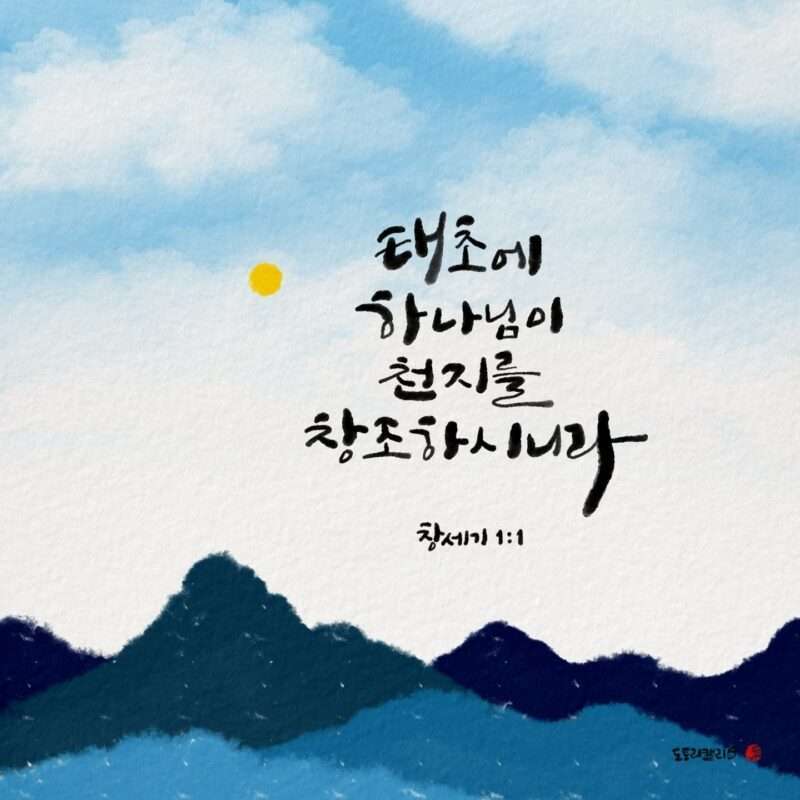 태초에
하나님이
천지를
창조하시니라
창세기 1:1